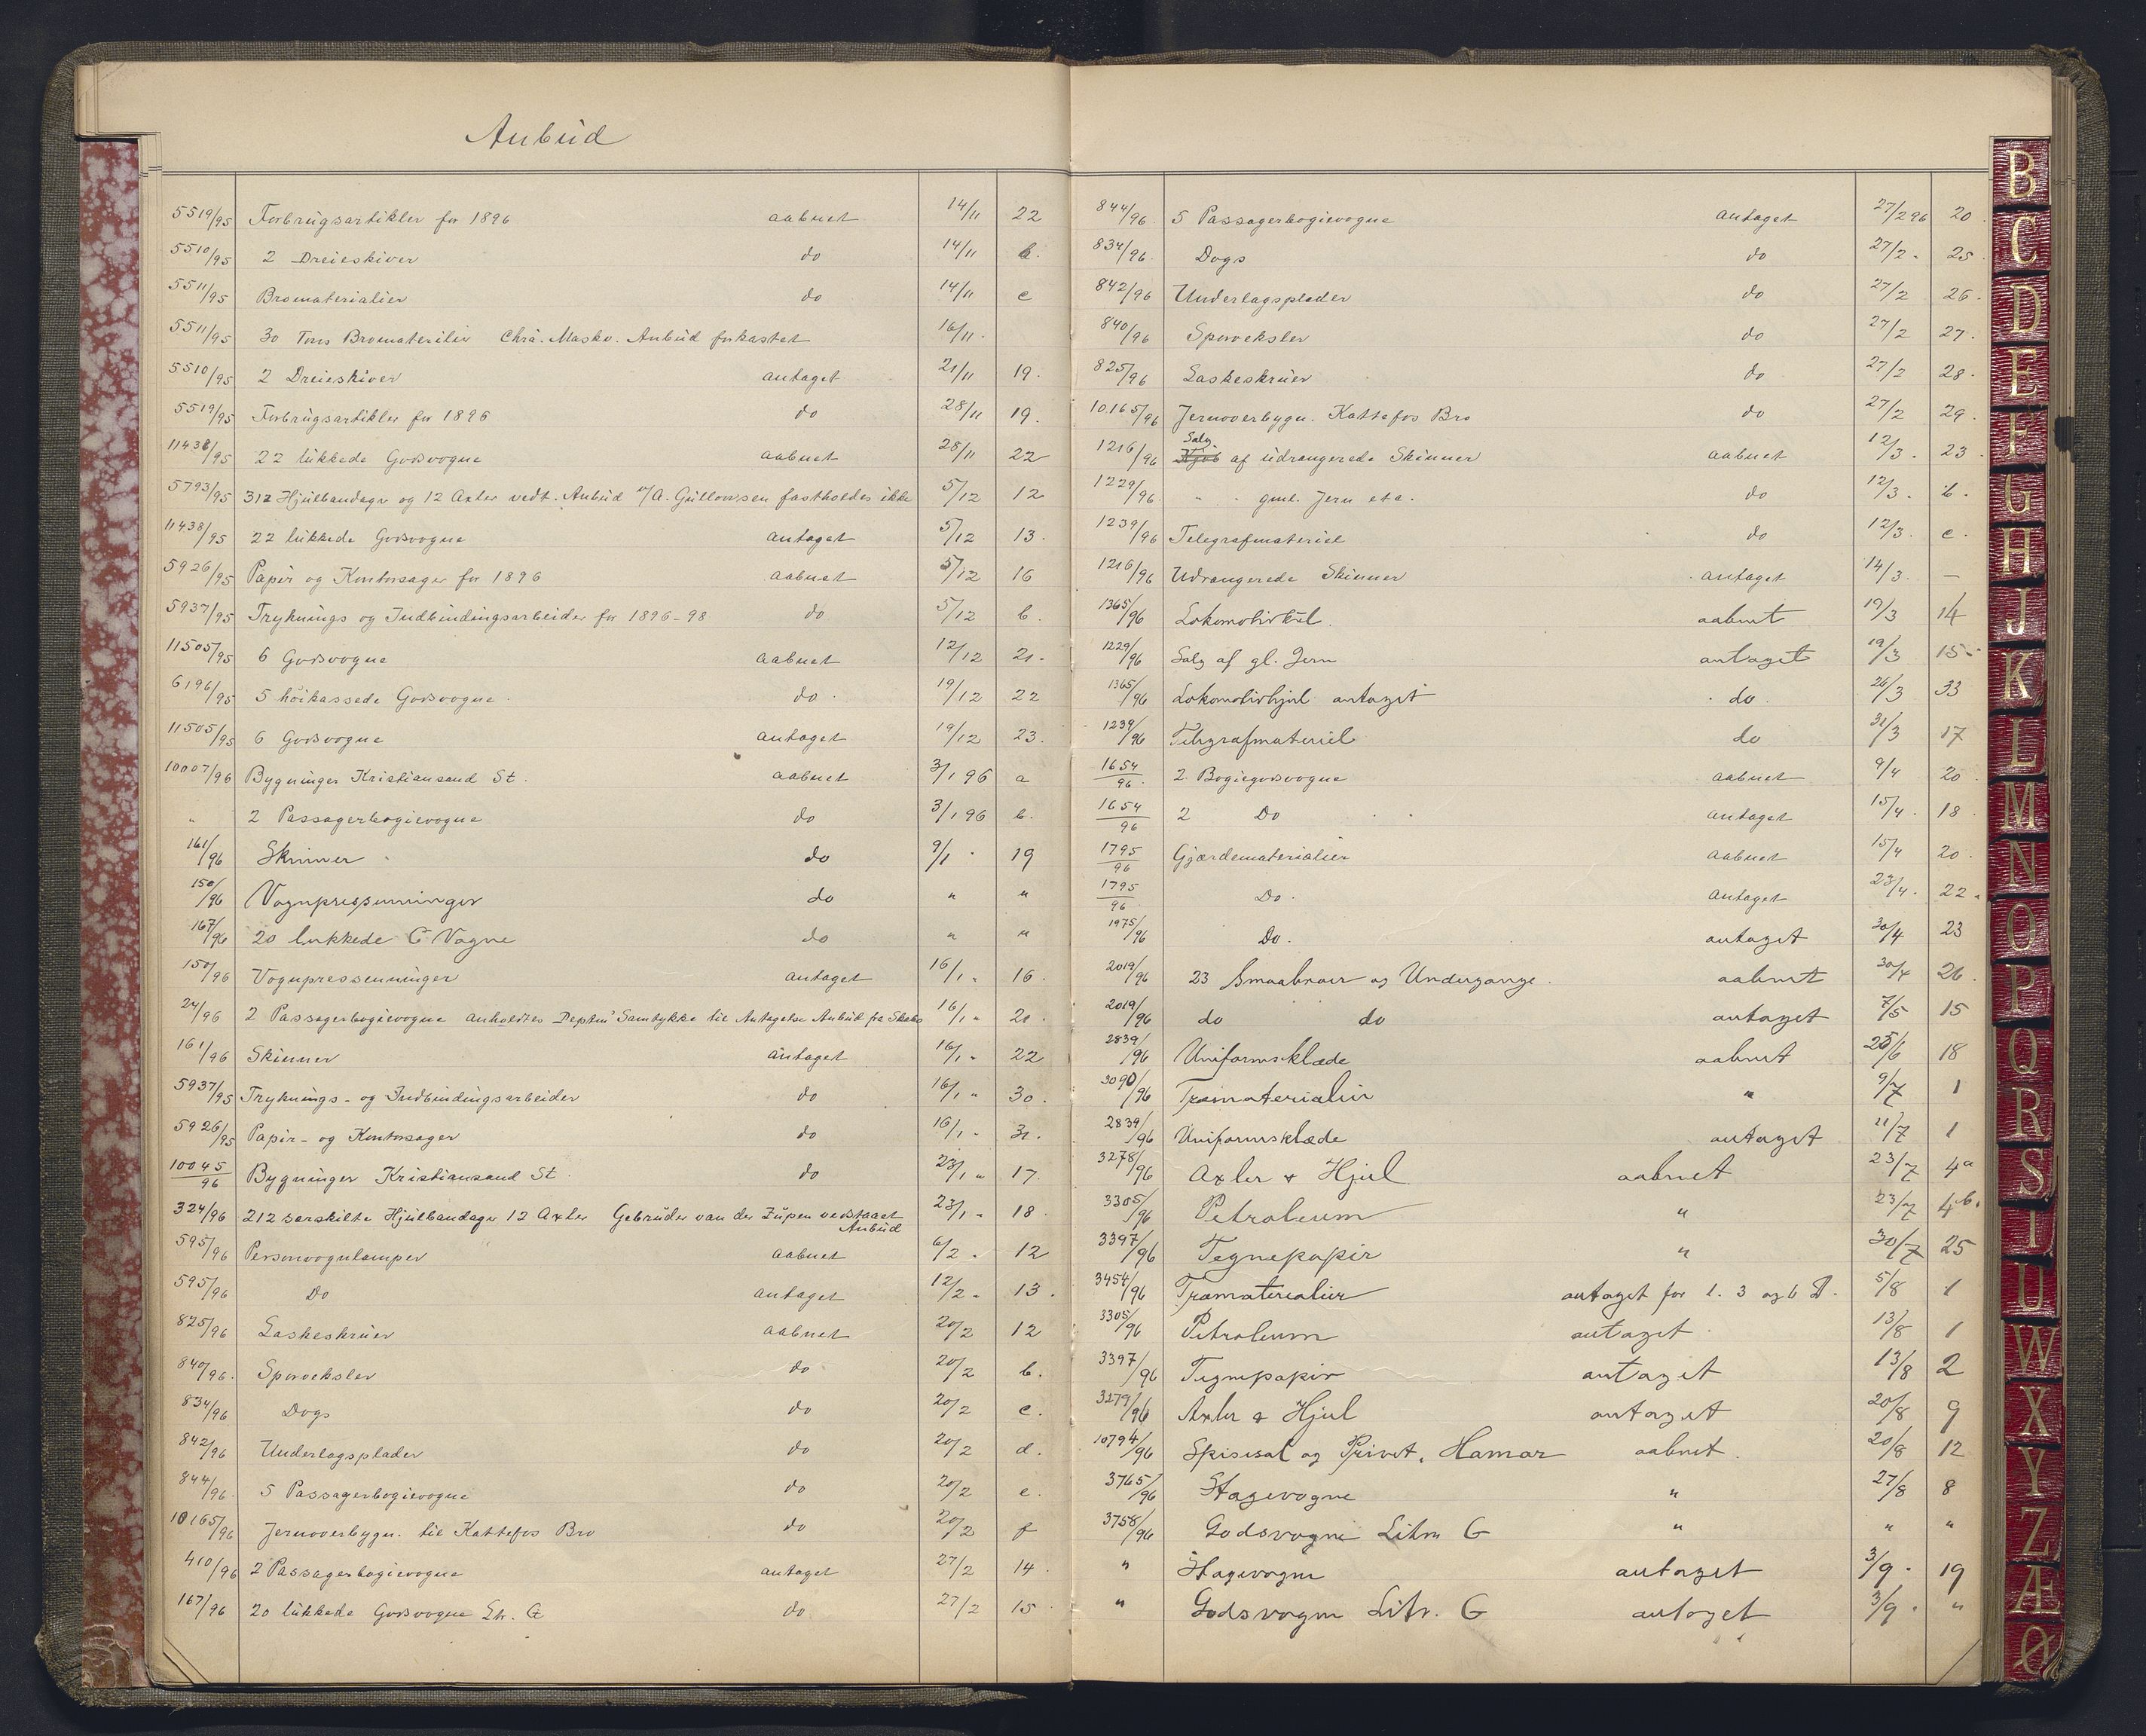 Anbud
5519/95 Forbrugsartikler for 1896 aabnet 14/11 22
5510/95 2 Dreieskiver do 14/11 b.
5511/95 Bromaterialier do 14/11 c
5511/95 30 Tons Bromaterilier Chra. Maskv. Anbud forkastet 16/11.
5510/95 2 Dreieskiver antaget 21/11 19.
5519/95 Forbrugsartikler for 1896 do 28/11 19.
11438/95 22 lukkede Godsvogne aabnet 28/11 22
5793/95 312 Hjulbandager og 12 Axler vedt. Anbud A. Gullowsen fastholdes ikke 5/12 12
11438/95 22 lukkede Godsvogne antaget 5/12 13.
5926/95 Papir og Kontorsager for 1896 aabnet 5/12 16
5937/95 Tryknings og Indbindingsarbeider for 1896-98 do 5/12 b.
11505/95 6 Godsvogne aabnet 12/12 21.
6196/95 5 höikassede Godsvogne. do. 19/12 22
11505/95 6 Godsvogne antaget 19/12 23.
10007/96 Bygninger Kristiansand St. aabnet 3/1 96 a
" 2 Passagerbogievogne do 3/1 96 b.
161/96 Skinner do 9/1 19
150/96 Vognpressenninger do " "
167/96 20 lukkede G Vogne do " "
150/96 Vognpressenninger antaget 16/1 " 16.
24/96 2 Passagerbogievogne anholdtes Deptm' Samtykke til Antagelse Anbud fra Skabo 16/1 " 21.
161/96 Skinner antaget 16/1 " 22
5937/95 Tryknings- og Indbindingsarbeider do 16/1 " 30.
5926/95 Papir- og Kontorsager do 16/1 " 31.
10045/96 Bygninger Kristiansand St. do 23/1 " 17.
324/96 212 særskilte Hjulbandager 12 Axler Gebrüder van der Zupen vedstaaet 23/1 " 18.
Anbud
595/96 Personvognlamper aabnet 6/2. 12
595/96 Do antaget 12/2. 13.
825/96 Laskeskruer aabnet 20/2 12
840/96. Sporveksler do 20/2 b.
834/96 Dogs do 20/2 c.
842/96 Underlagsplader do 20/2 d.
844/96. 5 Passagerbogievogne do 20/2 e.
10165/96 Jernoverbygn. til Kattefos Bro do 20/2 f
410/96 2 Passagerbogievogne antaget 27/2 14.
167/96 20 lukkede Godsvogne Ltr. G do 27/2 15
844/96. 5 Passagerbogievogne antaget 27/2 96 20.
834/96. Dogs do 27/2. 25
842/96 Underlagsplader do 27/2 26.
840/96 Sporveksler do 27/2 27.
825/96 Laskeskruer do 27/2 28.
10165/96 Jernoverbygn. Kattefos Bro do 27/2 29.
Salg
1216/96 Kjøb af udrangerede Skinner aabnet 12/3. 23.
1229/96. " " gml. Jern etc. do 12/3. b.
1239/96 Telegrafmateriel do 12/3. c.
1216/96 Udrangerede Skinner antaget 14/3. —
1365/96 Lokomotivhjul. aabnet 19/3 14
1229/96 Salg af gl. Jern antaget 19/3 15.
1365/96 Lokomotivhjul antaget do. 26/3 33
1239/96 Telegrafmateriel do 31/3 17
1654/96. 2 Bogiegodsvogne aabnet 9/4 20.
1654/96 2 Do antaget 15/4. 18.
1795/96 Gjærdematerialier aabnet 15/4 20.
1795/96. Do. antaget 23/4. 22.
1975/96 Do. antaget 30/4 23
2019/96 23 Smaabroer og Undergange. aabnet 30/4 26.
2019/96 do do antaget 7/5 15
2839/96 Uniformsklæde aabnet 25/6 18
3090/96 Træmaterialier " 9/7 1
2839/96 Uniformsklæde antaget 11/7 1
3278/96 Axler & Hjul aabnet 23/7 4a
3305/96 Petroleum " 23/7 4b.
3397/96 Tegnepapir " 30/7 25
3454/96 Træmaterialier antaget for 1. 3 og 6 D. 5/8 1
3305/96 Petroleum antaget 13/8 1
3397/96 Tegnepapir antaget 13/8 2
3279/96 Axler & Hjul antaget 20/8 9
10794/96 Spisesal og Privet, Hamar aabnet. 20/8 12
3765/96 Stagevogne " 27/8 8
3758/96 Godsvogne Litra G " " "
" Stagevogne antaget 3/9. 19
" Godsvogne Litr. G antaget 3/9. "
B
C
D
E
F
G
H
J
K
L
M
N
O
P
Q
R
S
T
U
W
X
Y
Z
Æ
Ø